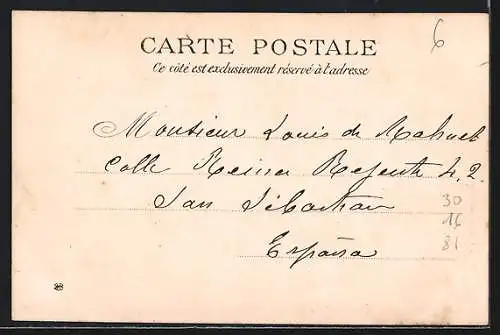 6
CARTE POSTALE
Ce côté est exclusivement réservé à l'adresse
Monsieur Louis de
Calle Reina Regente 4, 2
San Sébastian
30
España
16
81